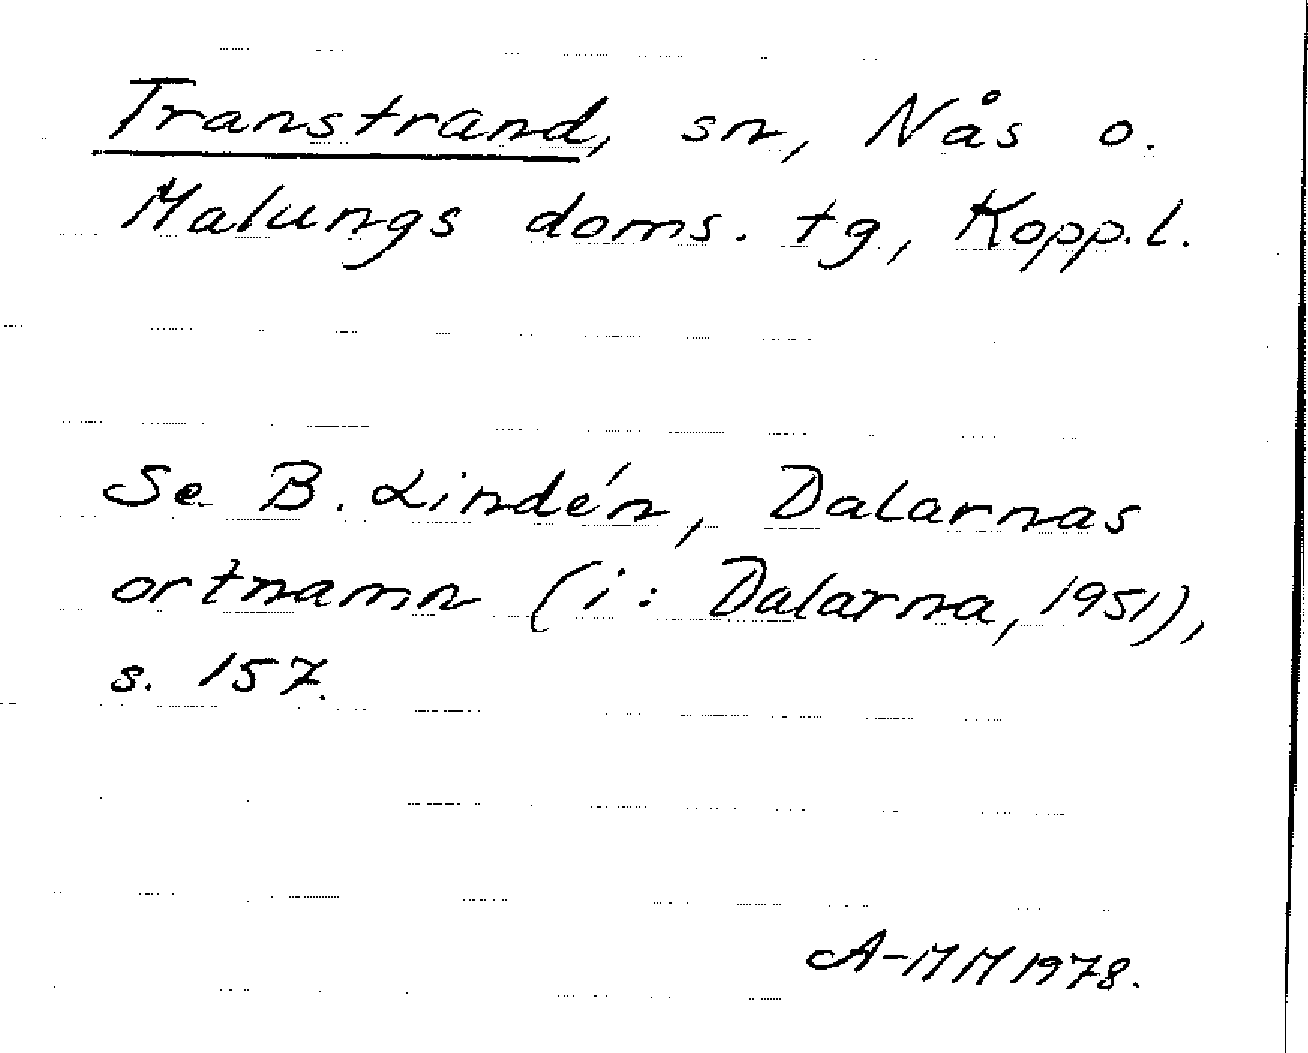 Transtrand, sn, Nås o.
Malungs doms. tg, Kopp.l.
Se B. Lindén, Dalarnas
ortnamn (i: Dalarna, 1951),
s. 157.
A-MM 1978.